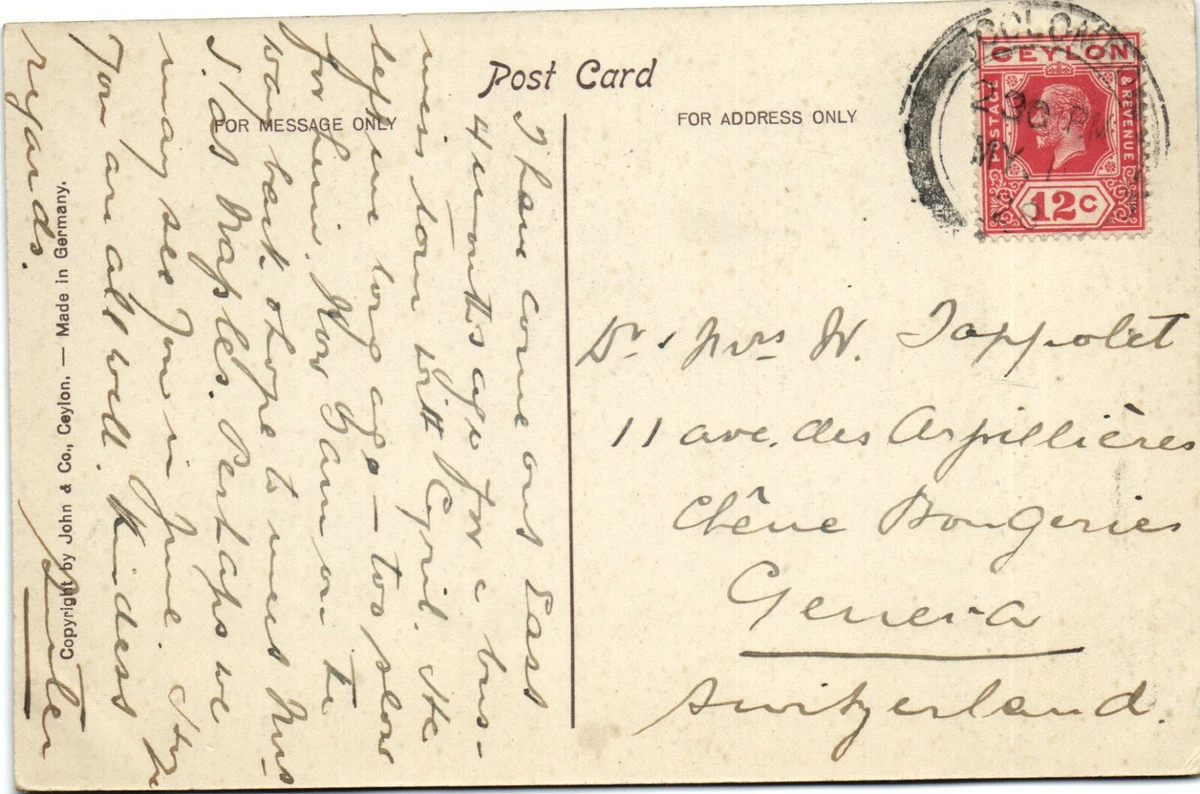 Post Card
FOR MESSAGE ONLY
FOR ADDRESS ONLY
CEYLON
POSTAGE
& REVENUE
12C
COLOM
2 30 PM
MY 1
I have come out East
4 months ago for a bus-
iness tour with Cyril. He
left me long ago — too slow
for him. Now I am on the
way back & hope to meet Mrs
S. at Naples. Perhaps we
may see you in June. Hope
You are all well. Kindest
regards.
Dr & Mrs W. Tappolet
11 ave. des Arpillières
Chêne Bougeries
Geneva
Switzerland.
Copyright by John & Co., Ceylon. — Made in Germany.